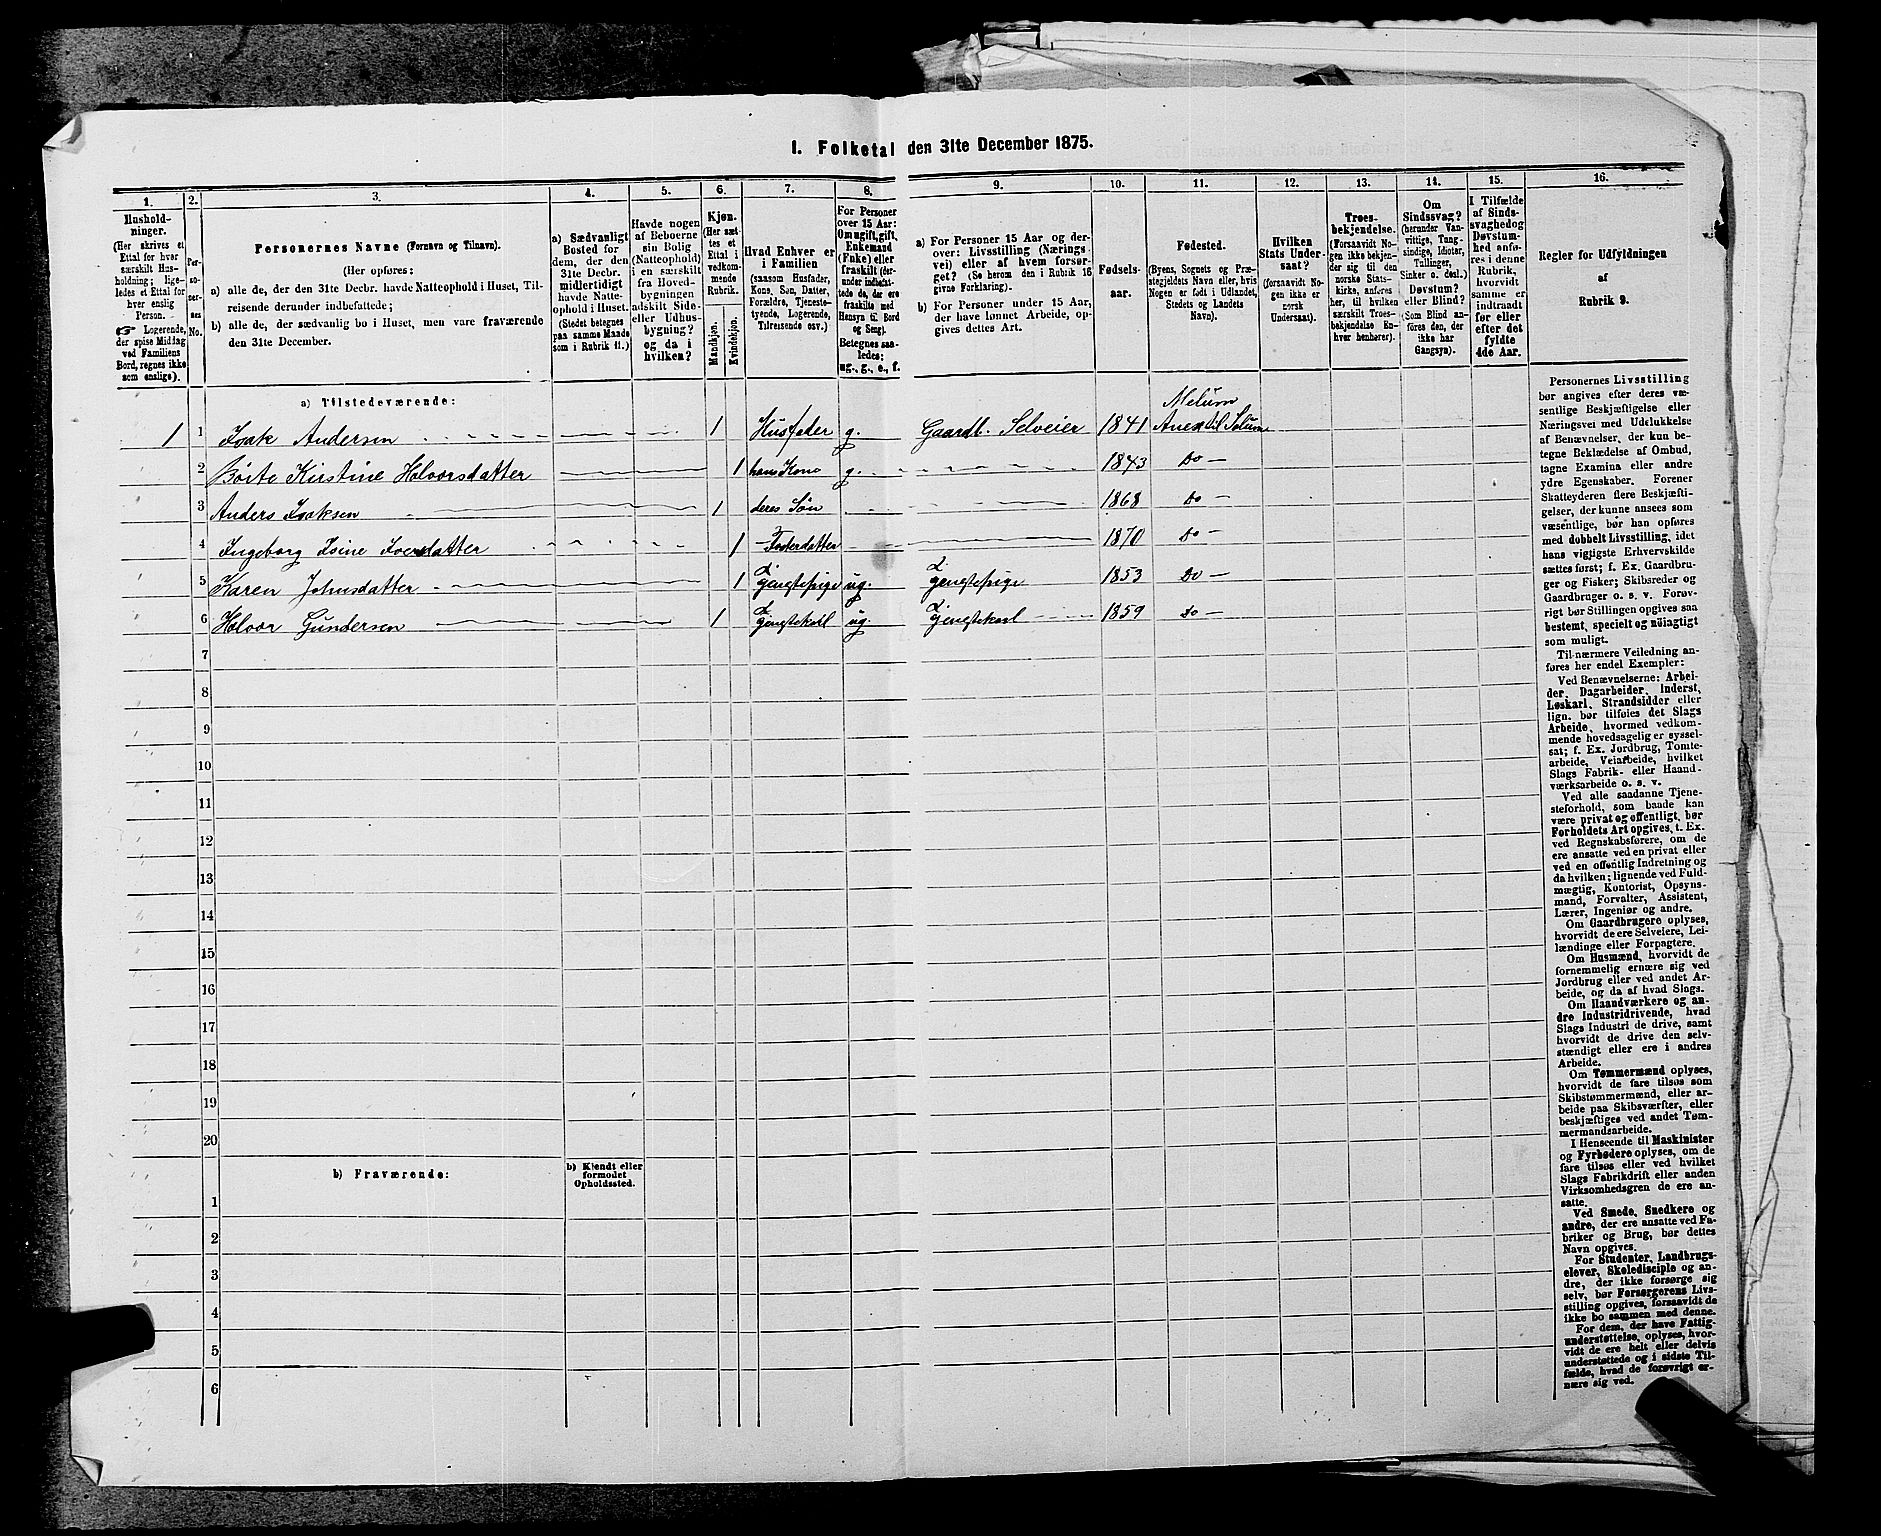 I. Folketal den 31te December 1875.
1. 2. 3. 4. 5. 6. 7. 8. 9. 10. 11. 12. 13. 14. 15. 16.
Hushold-
ninger.
(Her skrives et
Ettal for hver
særskilt Hus-
holdning; lige-
ledes et Ettal for
hver enslig
Person.
☞ Logerende,
der spise Middag
ved Familiens
Bord, regnes ikke
som enslige).
Per-
so-
ner-
nes
No.
Personernes Navne (Fornavn og Tilnavn).
(Her opføres:
a) alle de, der den 31te Decbr. havde Natteophold i Huset, Til-
reisende derunder indbefattede;
b) alle de, der sædvanlig bo i Huset, men vare fraværende
den 31te December.
a) Sædvanligt
Bosted for
dem, der den
31te Decbr.
midlertidigt
havde Natte-
ophold i Huset.
(Stedet betegnes
paa samme Maade
som i Rubrik 11.)
Havde nogen
af Beboerne
sin Bolig
(Natteophold)
i en særskilt
fra Hoved-
bygningen
adskilt Side-
eller Udhus-
bygning?
og da i
hvilken?
Kjøn.
(Her sæt-
tes et
Ettal i
vedkom-
mende
Rubrik.
Mandkjøn.
Kvindekjøn.
Hvad Enhver er
i Familien
(saasom Husfader,
Kone, Søn, Datter,
Forældre, Tjeneste-
tyende, Logerende,
Tilreisende osv.)
For Personer
over 15 Aar:
Om ugift, gift,
Enkemand
(Enke) eller
fraskilt (der-
under indbefat-
tede de, der ere
fraskilte med
Hensyn til Bord
og Seng).
Betegnes saa-
ledes:
ug., g., e., f.
a) For Personer 15 Aar og der-
over: Livsstilling (Nærings-
vei) eller af hvem forsør-
get? (Se herom den i Rubrik 16
givne Forklaring).
b) For Personer under 15 Aar,
der have lønnet Arbeide, op-
gives dettes Art.
Fødsels-
aar.
Fødested.
(Byens, Sognets og Præ-
stegjeldets Navn eller, hvis
Nogen er født i Udlandet,
Stedets og Landets
Navn).
Hvilken
Stats Under-
saat?
(forsaavidt No-
gen ikke er
norsk
Undersaat).
Troes-
bekjendelse.
(Forsaavidt No-
gen ikke bekjen-
der sig til den
norske Stats-
kirke, anføres
her, til hvilken
særskilt Troes-
bekjendelse En-
hver henhører).
Om
Sindssvag?
(herunder Van-
vittige, Tung-
sindige, Idioter,
Tullinger,
Sinker o. desl.)
Døvstum?
eller Blind?
(Som Blind an-
føres den, der
ikke har
Gangsyn).
I Tilfælde
af Sinds-
svaghed og
Døvstum-
hed anfø-
res i denne
Rubrik,
hvorvidt
samme er
indtraadt
før eller
efter det
fyldte
4de Aar.
Regler for Udfyldningen
af
Rubrik 9.
a) Tilstedeværende:
Melum
1 1 Isak Andersen 1 Husfader g. Gaardb. Selveier 1841 Anex til Solum
2 Börte Kirstine Halvorsdatter 1 hans Kone g. 1843 Do
3 Anders Isaksen 1 deres Søn 1868 Do
4 Ingeborg Isine Iversdatter 1 Fosterdatter 1870 Do
5 Karen Johnsdatter 1 Tjenestepige ug. Tjenestepige 1853 Do
6 Halvor Gundersen 1 Tjenestekarl ug. Tjenestekarl 1859 Do
7
8
9
10
11
12
13
14
15
16
17
18
19
20
b) Fraværende: b) Kjendt eller
formodet
Opholdssted.
1
2
3
4
5
6
Personernes Livsstilling
bør angives efter deres væ-
sentlige Beskjæftigelse eller
Næringsvei med Udelukkelse
af Benævnelser, der kun be-
tegne Beklædelse af Ombud,
tagne Examina eller andre
ydre Egenskaber. Forener
Skatteyderen flere Beskjæfti-
gelser, der kunne ansees som
væsentlige, bør han opføres
med dobbelt Livsstilling, idet
hans vigtigste Erhvervskilde
sættes først; f. Ex. Gaardbru-
ger og Fisker; Skibsreder og
Gaardbruger o. s. v. Forøv-
rigt bør Stillingen opgives saa
bestemt, specielt og nøiagtigt
som muligt.
Til nærmere Veiledning an-
føres her endel Exempler:
Ved Benævnelserne: Arbei-
der, Dagarbeider, Inderst,
Løskarl, Strandsidder eller
lign. bør tilføies det Slags
Arbeide, hvormed vedkom-
mende hovedsagelig er syssel-
sat; f. Ex. Jordbrug, Tomte-
arbeide, Veiarbeide, hvilket
Slags Fabrik- eller Haand-
værksarbeide o. s. v.
Ved alle saadanne Tjene-
steforhold, som baade kan
være privat og offentligt, bør
Forholdets Art opgives, t. Ex.
ved Regnskabsførere, om de
ere ansatte ved en privat eller
ved en offentlig Indretning og
da hvilken; lignende ved Fuld-
mægtig, Kontorist, Opsyns-
mand, Forvalter, Assistent,
Lærer, Ingeniør og andre.
Om Gaardbrugere oplyses,
hvorvidt de ere Selveiere, Lei-
lændinge eller Forpagtere.
Om Husmænd, hvorvidt de
fornemmelig ernære sig ved
Jordbrug eller ved andet Ar-
beide, og da af hvad Slags.
Om Haandværkere og an-
dre Industridrivende, hvad
Slags Industri de drive, samt
hvorvidt de drive den selv-
stændigt eller ere i andres
Arbeide.
Om Tømmermænd oplyses,
hvorvidt de fare tilsøs som
Skibstømmermænd, eller ar-
beide paa Skibsværfter, eller
beskjæftiges ved andet Tøm-
mermandsarbeide.
I Henseende til Maskinister
og Fyrbødere oplyses, om de
fare tilsøs eller ved hvilket
Slags Fabrikdrift eller anden
Virksomhedsgren de ere an-
satte.
Ved Smede, Snedkere og
andre, der ere ansatte ved Fa-
briker og Brug, bør dettes
Navn opgives.
For Studenter, Landbrugs-
elever, Skoledisciple og an-
dre, der ikke forsørge sig
selv, bør Forsørgerens Livs-
stilling opgives, forsaavidt de
ikke bo sammen med denne.
For dem, der have Fattig-
understøttelse, oplyses, hvor-
vidt de ere helt eller delvis
understøttede og i sidste Til-
fælde, hvad de forøvrigt er-
nære sig ved.